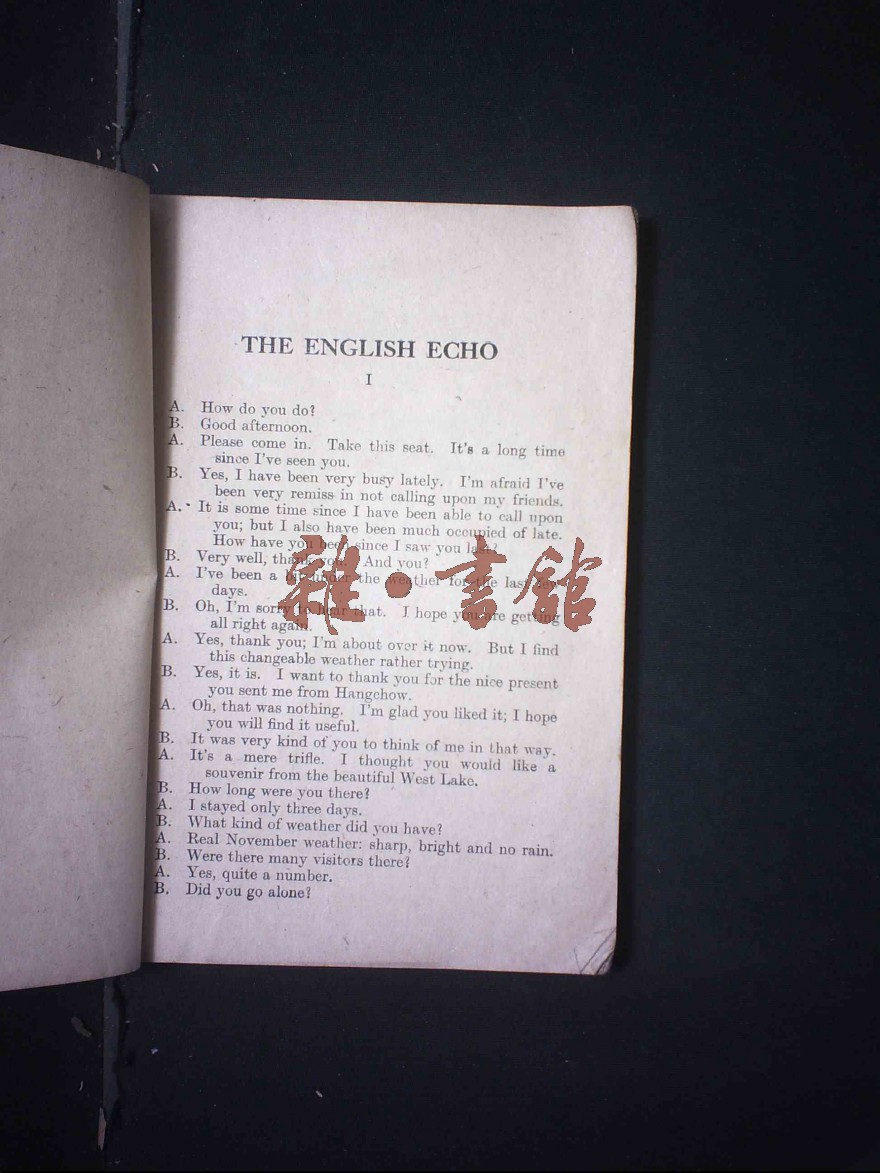 THE ENGLISH ECHO
I
A. How do you do?
B. Good afternoon.
A. Please come in. Take this seat. It's a long time
since I've seen you.
B. Yes, I have been very busy lately. I'm afraid I've
been very remiss in not calling upon my friends.
A. It is some time since I have been able to call upon
you; but I also have been much occupied of late.
How have you been since I saw you last?
B. Very well, thank you. And you?
A. I've been a bit under the weather for the last few
days.
B. Oh, I'm sorry to hear that. I hope you are getting
all right again.
A. Yes, thank you; I'm about over it now. But I find
this changeable weather rather trying.
B. Yes, it is. I want to thank you for the nice present
you sent me from Hangchow.
A. Oh, that was nothing. I'm glad you liked it; I hope
you will find it useful.
B. It was very kind of you to think of me in that way.
A. It's a mere trifle. I thought you would like a
souvenir from the beautiful West Lake.
B. How long were you there?
A. I stayed only three days.
B. What kind of weather did you have?
A. Real November weather: sharp, bright and no rain.
B. Were there many visitors there?
A. Yes, quite a number.
B. Did you go alone?
雜·書館